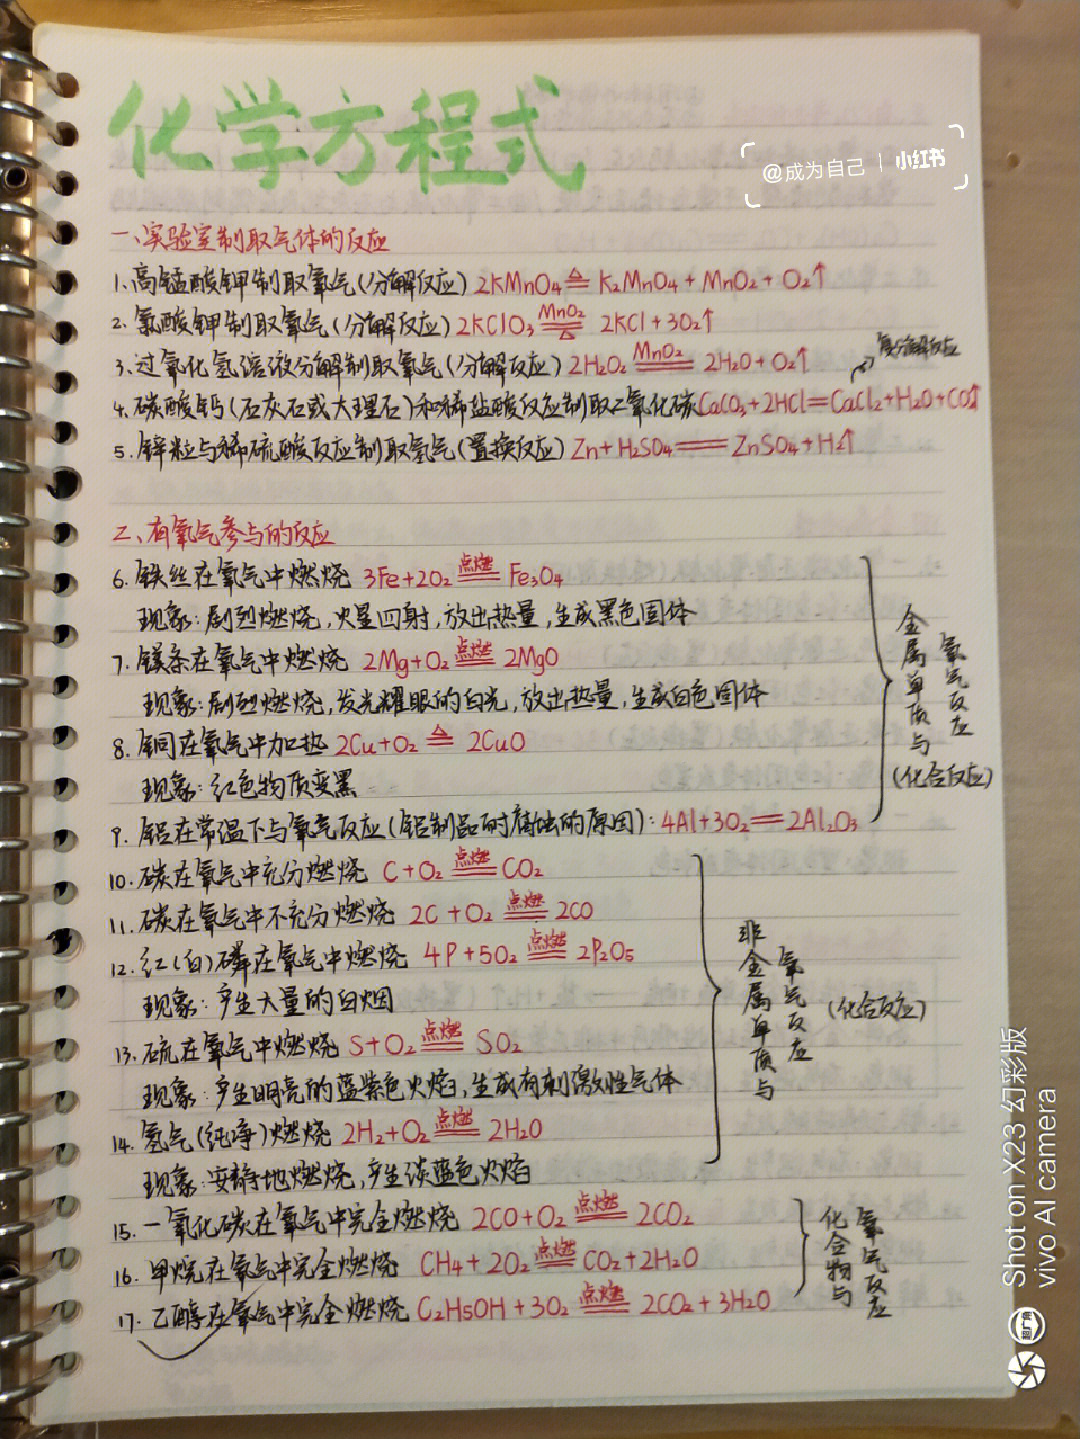 化学方程式
@成为自己 | 小红书
一、实验室制取气体的反应
1.高锰酸钾制取氧气(分解反应) 2KMnO₄ ≜ K₂MnO₄ + MnO₂ + O₂↑
2.氯酸钾制取氧气(分解反应) 2KClO₃ =MnO₂/△= 2KCl + 3O₂↑
复分解反应
3.过氧化氢溶液分解制取氧气(分解反应) 2H₂O₂ =MnO₂= 2H₂O + O₂↑
4.碳酸钙(石灰石或大理石)和稀盐酸反应制取二氧化碳CaCO₃+2HCl=CaCl₂+H₂O+CO₂↑
5.锌粒与稀硫酸反应制取氢气(置换反应) Zn+H₂SO₄=ZnSO₄+H₂↑
二、有氧气参与的反应
6.铁丝在氧气中燃烧 3Fe+2O₂ =点燃= Fe₃O₄
现象:剧烈燃烧,火星四射,放出热量,生成黑色固体
7.镁条在氧气中燃烧 2Mg+O₂ =点燃= 2MgO
现象:剧烈燃烧,发光耀眼的白光,放出热量,生成白色固体
8.铜在氧气中加热 2Cu+O₂ ≜ 2CuO
现象:红色物质变黑
9.铝在常温下与氧气反应(铝制品耐腐蚀的原因):4Al+3O₂=2Al₂O₃
金属单质与
氧气反应
(化合反应)
10.碳在氧气中充分燃烧 C+O₂ =点燃= CO₂
11.碳在氧气中不充分燃烧 2C+O₂ =点燃= 2CO
12.红(白)磷在氧气中燃烧 4P+5O₂ =点燃= 2P₂O₅
现象:产生大量的白烟
13.硫在氧气中燃烧 S+O₂ =点燃= SO₂
现象:产生明亮的蓝紫色火焰,生成有刺激性气体
14.氢气(纯净)燃烧 2H₂+O₂ =点燃= 2H₂O
现象:安静地燃烧,产生淡蓝色火焰
非金属单质与
氧气反应
(化合反应)
15.一氧化碳在氧气中完全燃烧 2CO+O₂ =点燃= 2CO₂
16.甲烷在氧气中完全燃烧 CH₄+2O₂ =点燃= CO₂+2H₂O
17.乙醇在氧气中完全燃烧 C₂H₅OH+3O₂ =点燃= 2CO₂+3H₂O
化合物与
氧气反应
Shot on X23 幻彩版
vivo AI camera
超广角